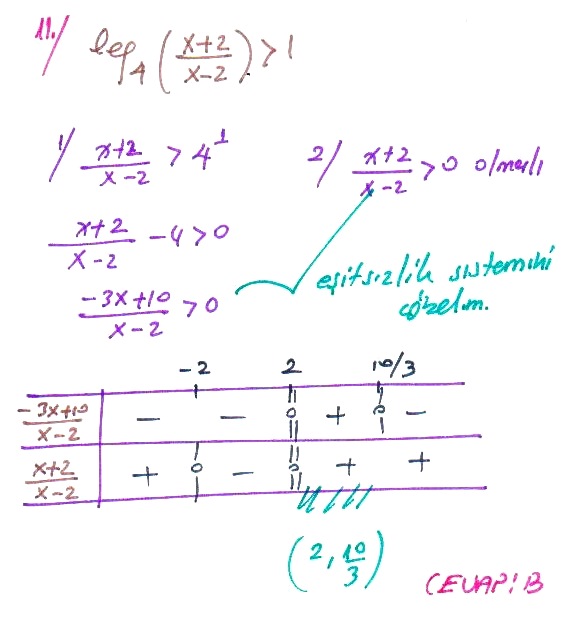 11.) log₄(x+2/x-2) > 1
1) x+2/x-2 > 4¹
2) x+2/x-2 > 0 olmalı
x+2/x-2 - 4 > 0
-3x+10/x-2 > 0
eşitsizlik sistemini
çözelim.
-2 2 10/3
-3x+10/x-2 - - o + o -
x+2/x-2 + o - o + +
(2, 10/3)
CEVAP: B